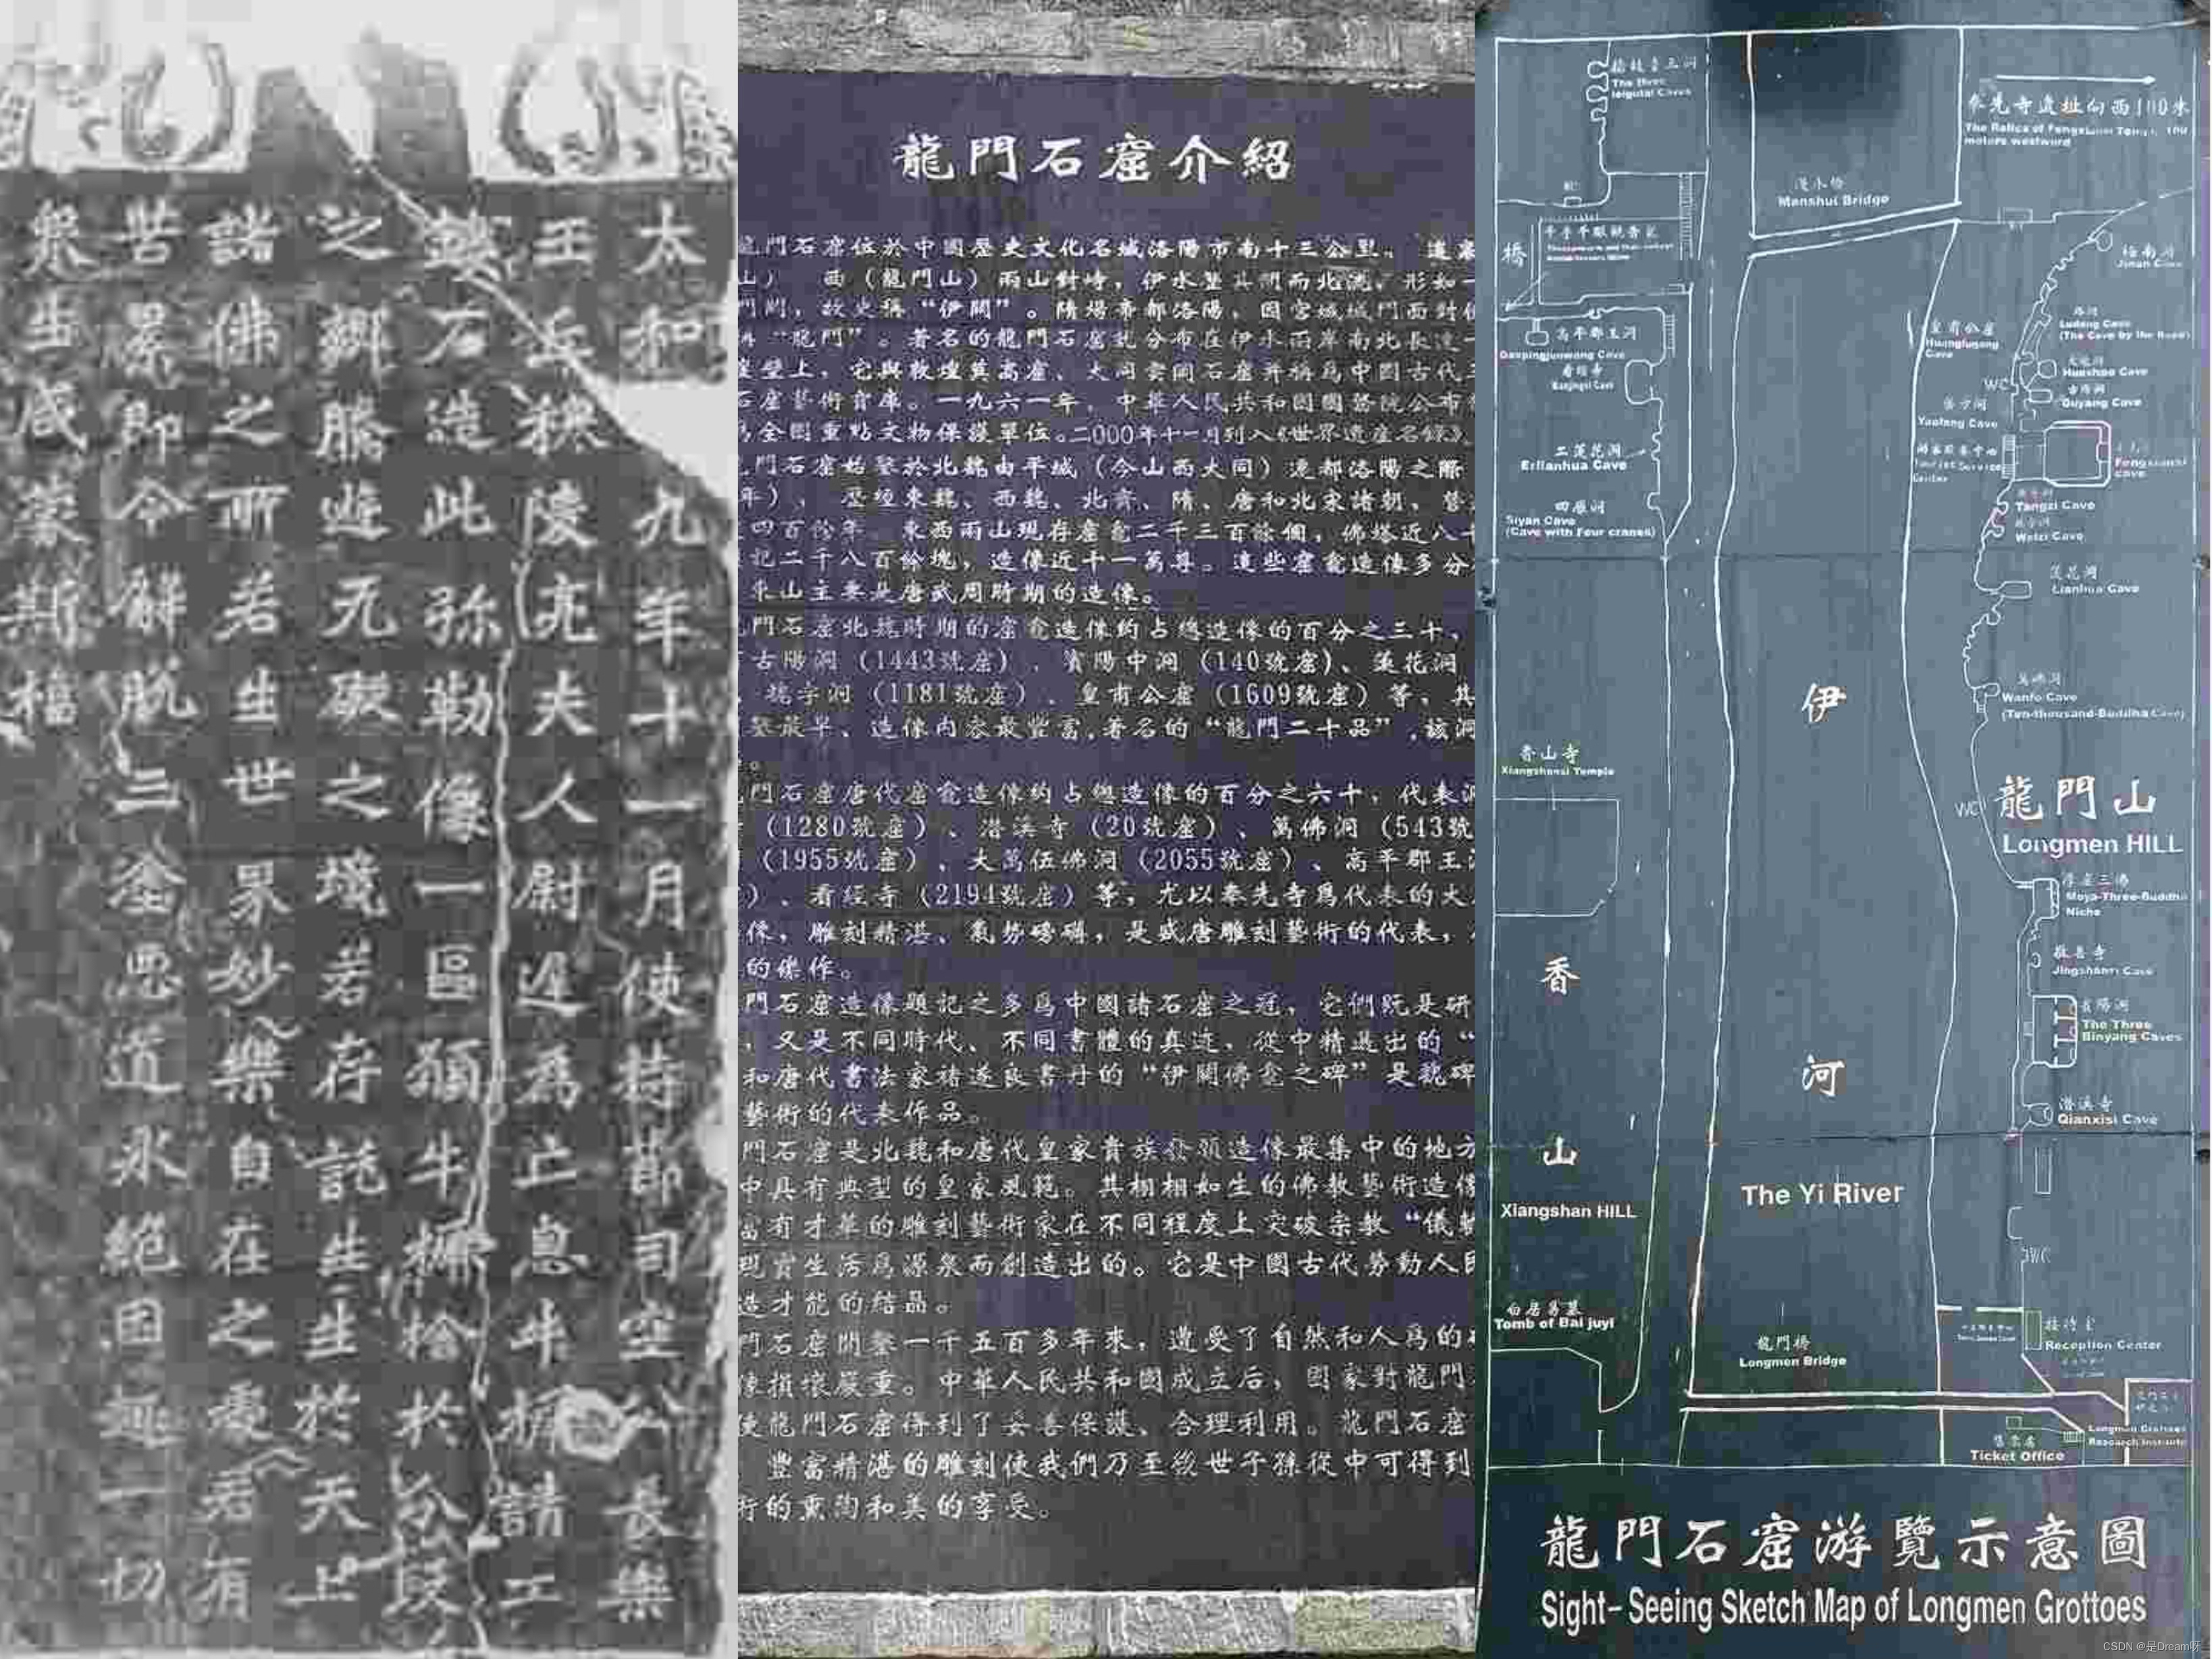 太和九年十一月使持節司空公長樂
王丘穆陵亮夫人尉遲為亡息牛橛請工
鏤石造此弥勒像一區願牛橛捨於分段
之鄉騰遊无礙之境若存託生生於天上
諸佛之所若生世界妙樂自在之處若有
苦累即令解脱三塗惡道永絕因趣一切
衆生咸蒙斯福
龍門石窟介紹
龍門石窟位於中國歷史文化名城洛陽市南十三公里。這裏
山） 西（龍門山）兩山對峙，伊水蜿其間而北流，形如一
門闕，故史稱“伊闕”。隋煬帝都洛陽，因宮城城門面對
“龍門”。著名的龍門石窟就分布在伊水兩岸南北長達一
崖壁上，它與敦煌莫高窟、大同雲岡石窟并稱爲中國古代
石窟藝術寶庫。一九六一年，中華人民共和國國務院公布
爲全國重點文物保護單位。二000年十一月列入《世界遺産名録》
門石窟始鑿於北魏由平城（今山西大同）遷都洛陽之際
年），歷經東魏、西魏、北齊、隋、唐和北宋諸朝，營
四百餘年。東西兩山現存窟龕二千三百餘個，佛塔近八十
記二千八百餘塊，造像近十一萬尊。這些窟龕造像多分
東山主要是唐武周時期的造像。
門石窟北魏時期的窟龕造像約占總造像的百分之三十，
古陽洞（1443號窟）、賓陽中洞（140號窟）、蓮花洞
魏字洞（1181號窟）、皇甫公窟（1609號窟）等，其
鑿最早、造像内容最豐富,著名的“龍門二十品”,該洞
。
門石窟唐代窟龕造像約占總造像的百分之六十，代表洞
（1280號窟）、潛溪寺（20號窟）、萬佛洞（543號
（1955號窟）、大萬伍佛洞（2055號窟）、高平郡王
）、看經寺（2194號窟）等，尤以奉先寺爲代表的大
像，雕刻精湛、氣勢磅礴，是盛唐雕刻藝術的代表，
的傑作。
門石窟造像題記之多爲中國諸石窟之冠，它們既是研
，又是不同時代、不同書體的真迹，從中精選出的“
和唐代書法家褚遂良書丹的“伊闕佛龕之碑”是魏碑
藝術的代表作品。
門石窟是北魏和唐代皇家貴族發願造像最集中的地方
中具有典型的皇家風範。其栩栩如生的佛教藝術造像
富有才華的雕刻藝術家在不同程度上突破宗教“儀軌
現實生活爲源泉而創造出的。它是中國古代勞動人民
造才能的結晶。
門石窟開鑿一千五百多年來，遭受了自然和人爲的
像損壞嚴重。中華人民共和國成立后，國家對龍門
使龍門石窟得到了妥善保護、合理利用。龍門石窟
豐富精湛的雕刻使我們乃至後世子孫從中可得到
術的熏陶和美的享受。
擂鼓臺三洞
The three
leigutai Caves
奉先寺遺址向西100米
The Relics of Fengxiansi Temple, 100
meters westward
漫水橋
Manshui Bridge
橋
千手千眼觀音龕
極南洞
Jinan Cave
高平郡王洞
Gaopingjunwang Cave
路洞
Ludong Cave
(The Cave by the Road)
皇甫公窟
Huangfugong
Cave
看經寺
Kanjingsi Cave
火燒洞
Huoshao Cave
WC
古陽洞
Guyang Cave
藥方洞
Yaofang Cave
二蓮花洞
Erlianhua Cave
游客服務中心
Tourist Service
Center
Fengxiansi
cave
四雁洞
Siyan Cave
(Cave with Four cranes)
Tangzi Cave
魏字洞
Weizi Cave
蓮花洞
Lianhua Cave
萬佛洞
Wanfo Cave
(Ten-thousand-Buddha Cave)
伊河
The Yi River
香山寺
Xiangshansi Temple
WC
龍門山
Longmen HILL
摩崖三佛
Moya-Three-Buddha
Niche
敬善寺
Jingshansi Cave
賓陽洞
The Three
Binyang Caves
潛溪寺
Qianxisi Cave
香山
Xiangshan HILL
WC
白居易墓
Tomb of Bai juyi
龍門橋
Longmen Bridge
接待室
Reception Center
售票處
Ticket Office
Longmen Grottoes
Research Institute
龍門石窟游覽示意圖
Sight-Seeing Sketch Map of Longmen Grottoes
CSDN @是Dream呀